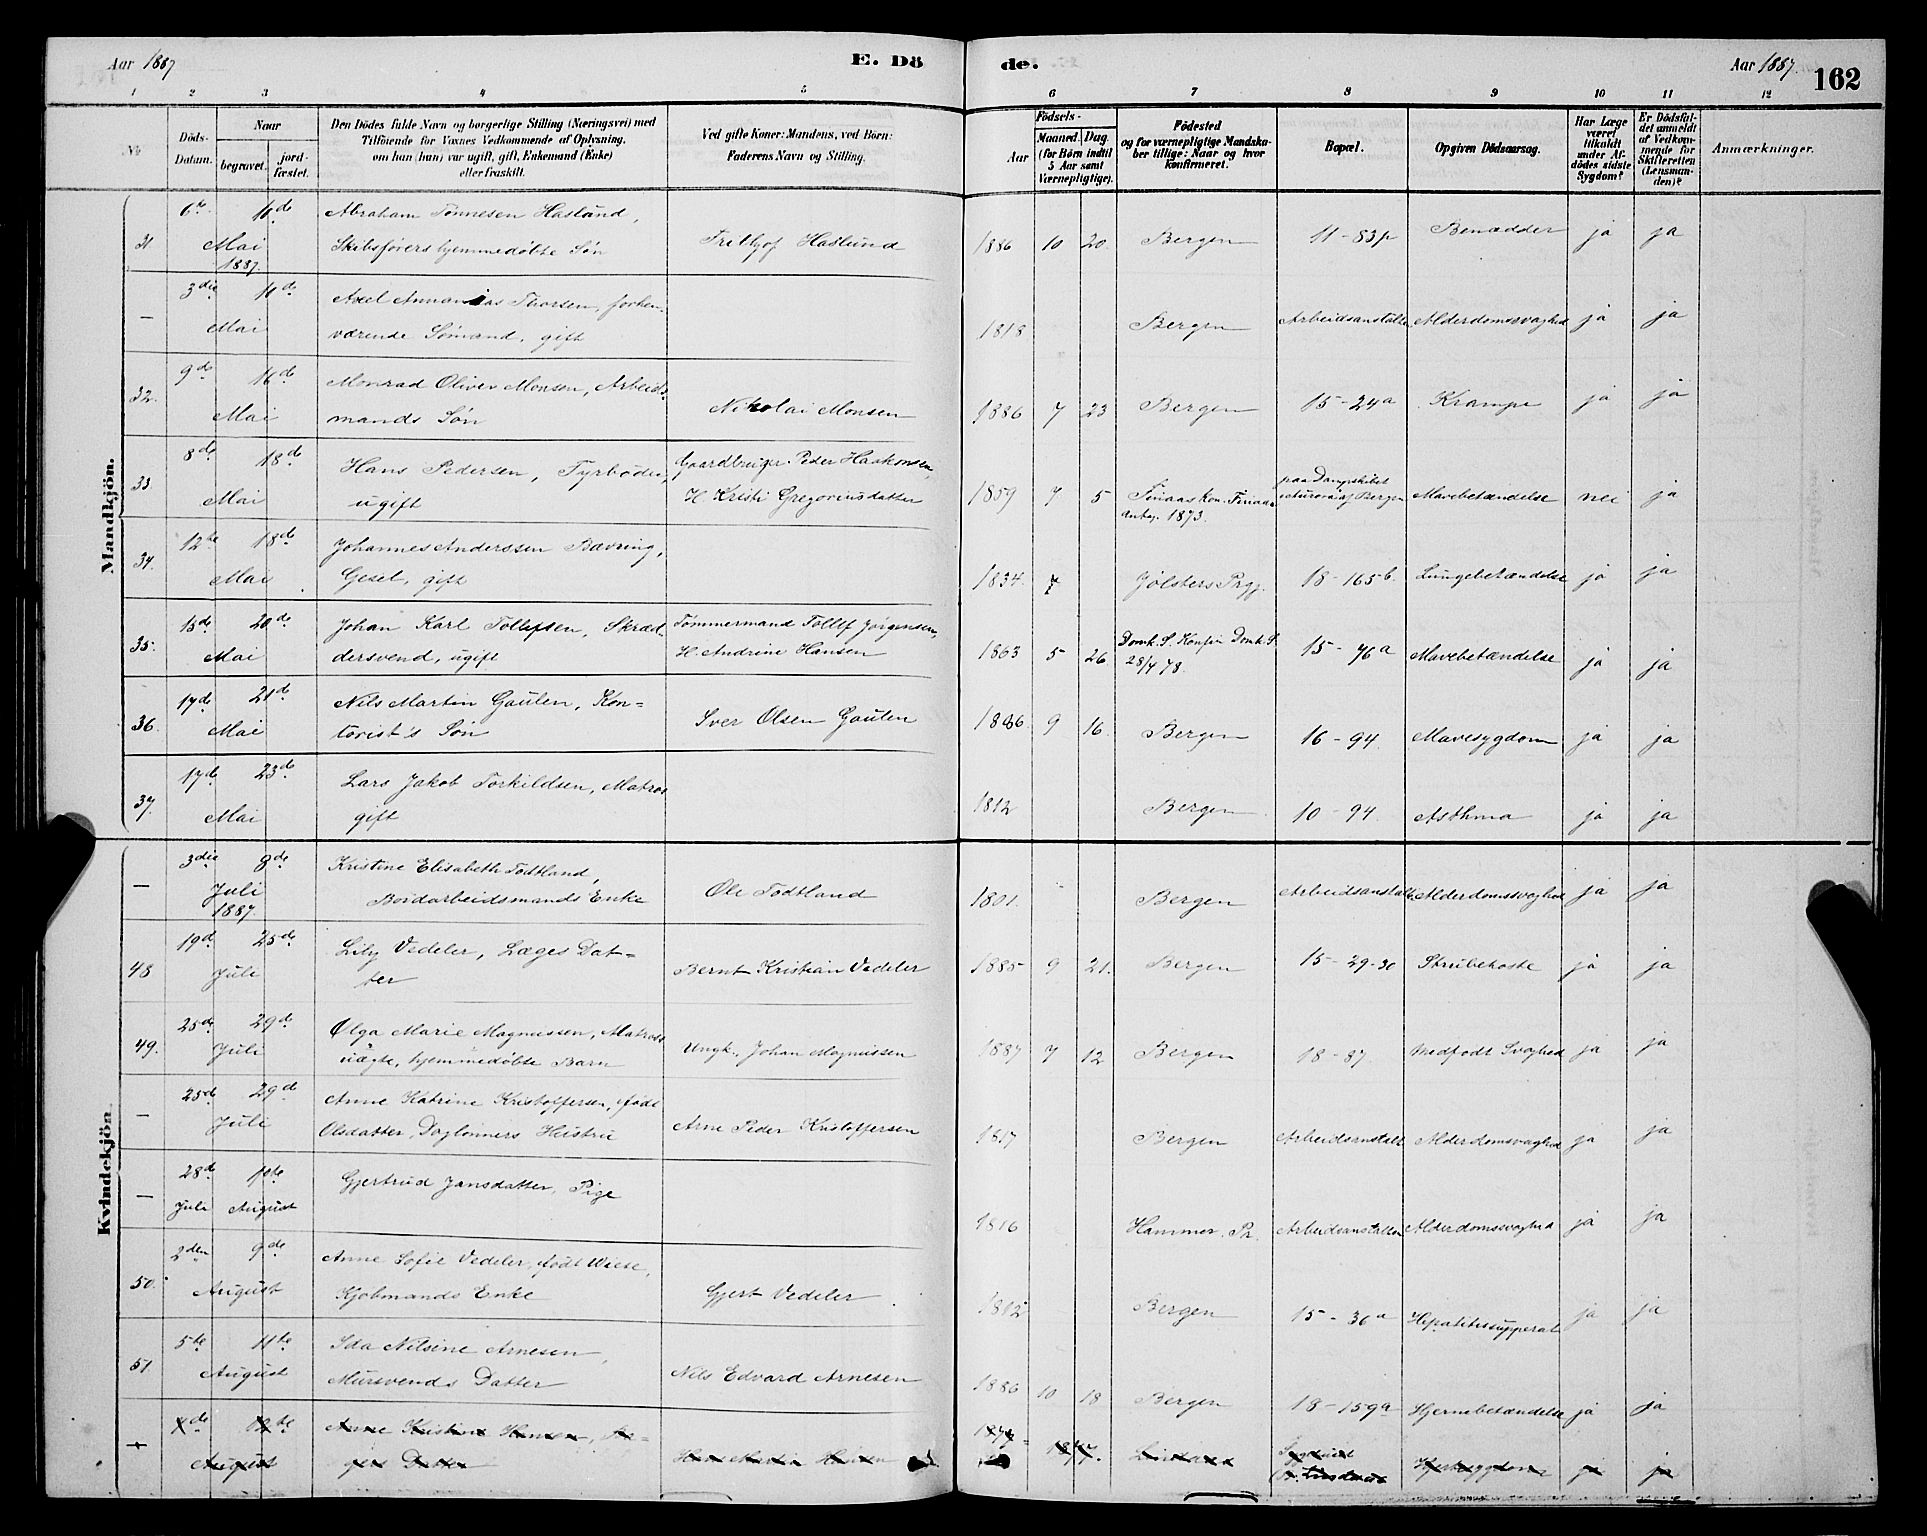 Aar 1887 E. Dö de. Aar 1887. 162
1 2 3 4 5 6 7 8 9 10 11 12
No
Döds-Datum.
Naar
begravet. jord-fæstet.
Den Dödes fulde Navn og borgerlige Stilling (Næringsvei) med
Tilföiende for Voxnes Vedkommende af Oplysning,
om han (hun) var ugift, gift, Enkemand (Enke)
eller fraskilt.
Ved gifte Koner: Mandens, ved Börn:
Faderens Navn og Stilling.
Födsels-
Aar Maaned. Dag.
(for Börn indtil
5 Aar samt
Værnepligtige).
Födested
og for værnepligtige Mandska-
ber tillige: Naar og hvor
konfirmeret.
Bopæl.
Opgiven Dödsaarsag.
Har Læge
været
tilkaldt
under Af-
dödes sidste
Sygdom?
Er Dödsfal-
det anmeldt
af Vedkom-
mende for
Skifteretten
(Lensman-
den)?
Anmærkninger.
Mandkjön.
31 6te 10de Mai 1887. Abraham Tönnesen Haslund,
Skibsförers hjemmedöbte Sön Frithjof Haslund 1886 10 20 Bergen 11-83p Benædder ja ja
— 3die 10de Mai Axel Annanias Thorsen, forhen-
værende Sömand, gift 1818 Bergen Arbeidsanstalten Alderdomssvaghed ja ja
32. 9de 16de Mai Monrad Oliver Monsen, Arbeids-
mands Sön Nikolai Monsen 1886 7 23 Bergen 15-24a Krampe ja ja
33. 8de 18de Mai Hans Pedersen, Fyrböder,
ugift Gaardbruger Peder Haakonsen,
H. Kristi Gregoriusdatter 1859 7 5 Finaas Kon. Finaas
1873. paa Dampskibet
Aurora af Bergen Mavebetændelse nei ja
34. 12te 18de Mai Johannes Anderssen Bævring,
Gesel, gift 1834. Jölsters Prgj. 18-165b. Lungebetændelse ja ja
35. 15de 20de Mai Johan Karl Tollefsen, Skræd-
dersvend, ugift Tömmermand Tollef Jörgensen,
H. Andrine Hansen 1863 5 26 Domk. S. Konfir. Domk. S.
28/4 78. 15-76a Mavebetændelse ja ja
36. 17de 21de Mai Nils Martin Gaulen, Kon-
torist's Sön Iver Olsen Gaulen 1886. 9 16. Bergen 16-94. Mavesygdom ja ja
37. 17de 23de Mai Lars Jakob Torkildsen, Matros
gift 1812 Bergen 10-94. Asthma ja ja
Kvindekjön
— 3die 8de Juli 1887. Kristine Elisabeth Todtland,
Bordarbeidsmands Enke Ole Todtland 1801. Bergen Arbeidsanstalt. Alderdomssvaghed ja ja
48 19de 25de Juli Lily Vedeler, Læges Dat-
ter Bernt Kristian Vedeler 1885 9 21. Bergen 15-29-30 Strubehoste ja ja
49. 25de 29de Juli Olga Marie Magnussen, Matros
uægte, hjemmedöbte Barn Ungk., Johan Magnussen 1887 7 12 Bergen 18-87. Medfödt Svaghed ja ja
— 25de 29de Juli Anne Katrine Kristoffersen, födt
Olsdatter, Daglönners Hustru Arne Peder Kristoffersen 1817 Bergen Arbeidsanstalt Alderdomssvaghed ja ja
— 28de Juli 1ste August Gjertrud Jansdatter, Pige 1816 Hammer. Pr. Arbeidsanstalten Alderdomssvaghed ja ja
50. 2den 9de August Anne Sofie Vedeler, födt Wiese,
Kjöbmands Enke Gjert Vedeler 1812 Bergen 15-36a Hepatitis supperat ja ja
51 5te 11te August Ida Nilsine Arnesen,
Mursvends Datter Nils Edvard Arnesen 1886 10 18 Bergen 18-159a Hjernebetændelse ja ja
12te August Anne Kristine Hansen,
Datter Hans Martin Hansen 1877. Lindaas Lindaas Hjertesygdom ja ja